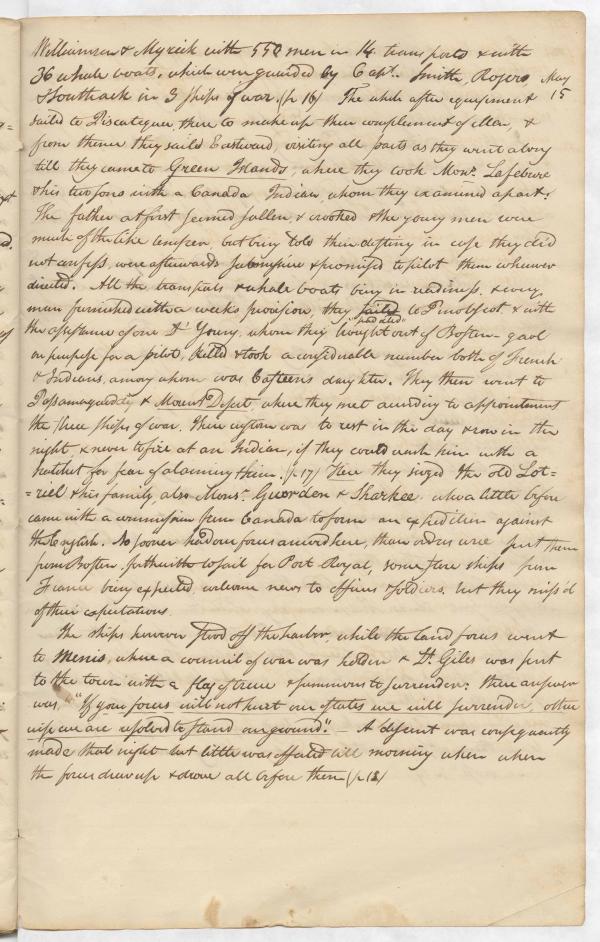 Williamson & Myrick with 550 men in 14 transports & with
36 whale boats, which were guarded by Capt. Smith, Rogers May
& Southack in 3 ships of war. (p 16) The whole after equipment 15
sailed to Piscataqua, there to make up their complement of Men, &
from thence they sailed Eastward, visiting all parts as they went along
till they came to Green Islands, where they took Monr. Lafebure
& his two sons with a Canada Indian, whom they examined apart.
The father at first seemed sullen, & crooked & the young men were
much of the like temper, but being told their destiny in case they did
not confess, were afterwards submissive & promised to pilot them wherever
directed. All the transports & whale boats being in readiness & every
man furnished with a weeks provision, they sailed to Penobscot & with
"padled"
the assistance of one D. Young, whom they brought out of Boston-gaol
on purpose for a pilot, killed & took a considerable number both of French
& Indians, among whom was Casteen's daughter. They then went to
Passamaquoddy & Mount Desert, where they met according to appointment
the three ships of war. Their custom was to rest in the day & row in the
night, & never to fire at an Indian, if they could reach him with a
hatchet for fear of alarming them. (p 17) Here they seized the old Lot=
=riel & his family, also Monsr. Guorden & Sharkee who a little before
came with a commission from Canada to form an expedition against
the English. No sooner had our forces arrived here, than orders were sent them
from Boston forthwith to sail for Port Royal, some three ships from
France being expected, welcome news to officers & soldiers, but they miss'd
of their expectations.
The ships however stood off the harbor, while the land forces went
to Menis, where a council of war was holden & Lt. Giles was sent
to the town with a flag of truce & summons to surrender: their answer
was, "If your forces will not hurt our estates we will surrender, other
wise we are resolved to stand our ground". — A descent was consequently
made that night but little was effected till morning when when
the forces drew up & drove all before them (p 18)